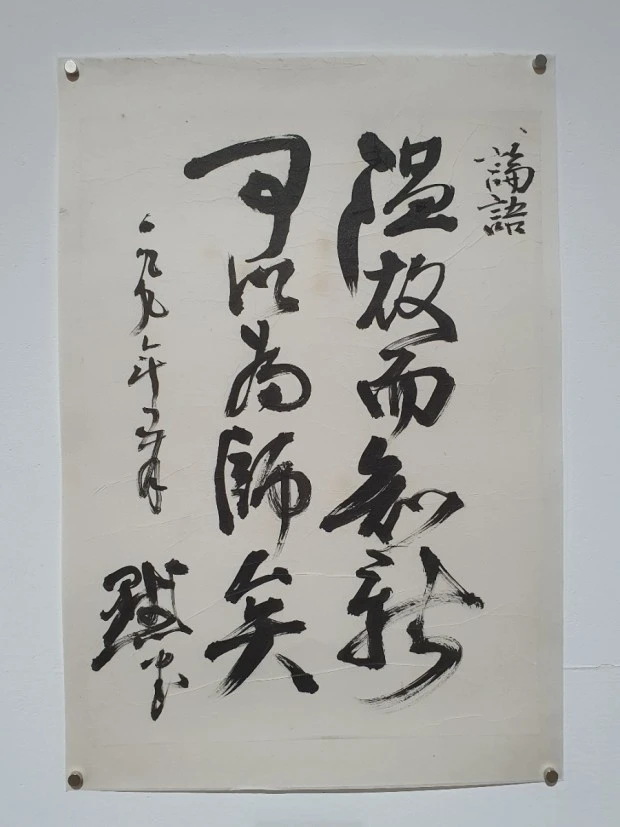 論語
温故而知新
可以為師矣
一九九 年 月
默書